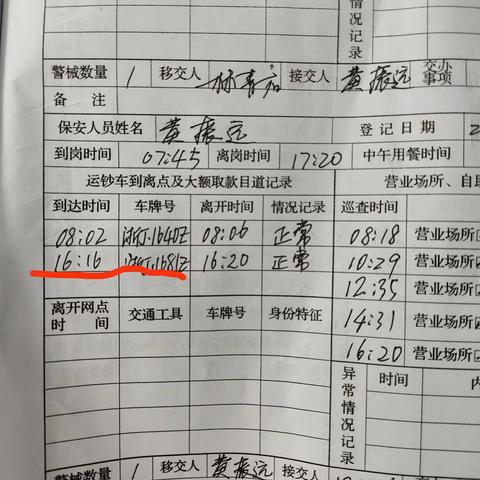 情况记录
警械数量 1 移交人 接交人 黄振远 交办事项
备注
保安人员姓名 黄振远 登记日期 2
到岗时间 07:45 离岗时间 17:20 中午用餐时间
运钞车到离点及大额取款目道记录 营业场所、自助
到达时间 车牌号 离开时间 情况记录 巡查时间
08:02 08:06 正常 08:18 营业场所
16:16 16:20 正常 10:29 营业场所
12:35 营业场所
离开网点时间 交通工具 车牌号 身份特征 14:31 营业场所
16:20 营业场所
异常情况记录 时间 内
警械数量 1 移交人 黄振远 接交人